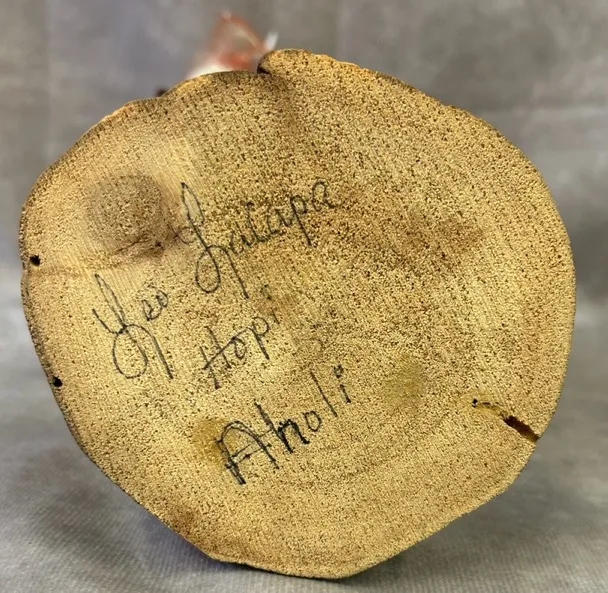 Leo Lacapa
Hopi
Aholi